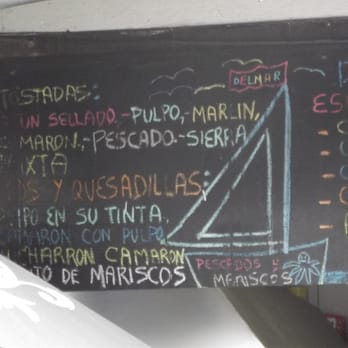 TOSTADAS:
TUN SELLADO.-PULPO,-MARLIN,
MARON,-PESCADO-SIERRA
IXTA
S Y QUESADILLAS:
PO EN SU TINTA,
MARON CON PULPO
CHARRON CAMARON
TO DE MARISCOS
DELMAR
PESCADOS Y
MARISCOS
ES